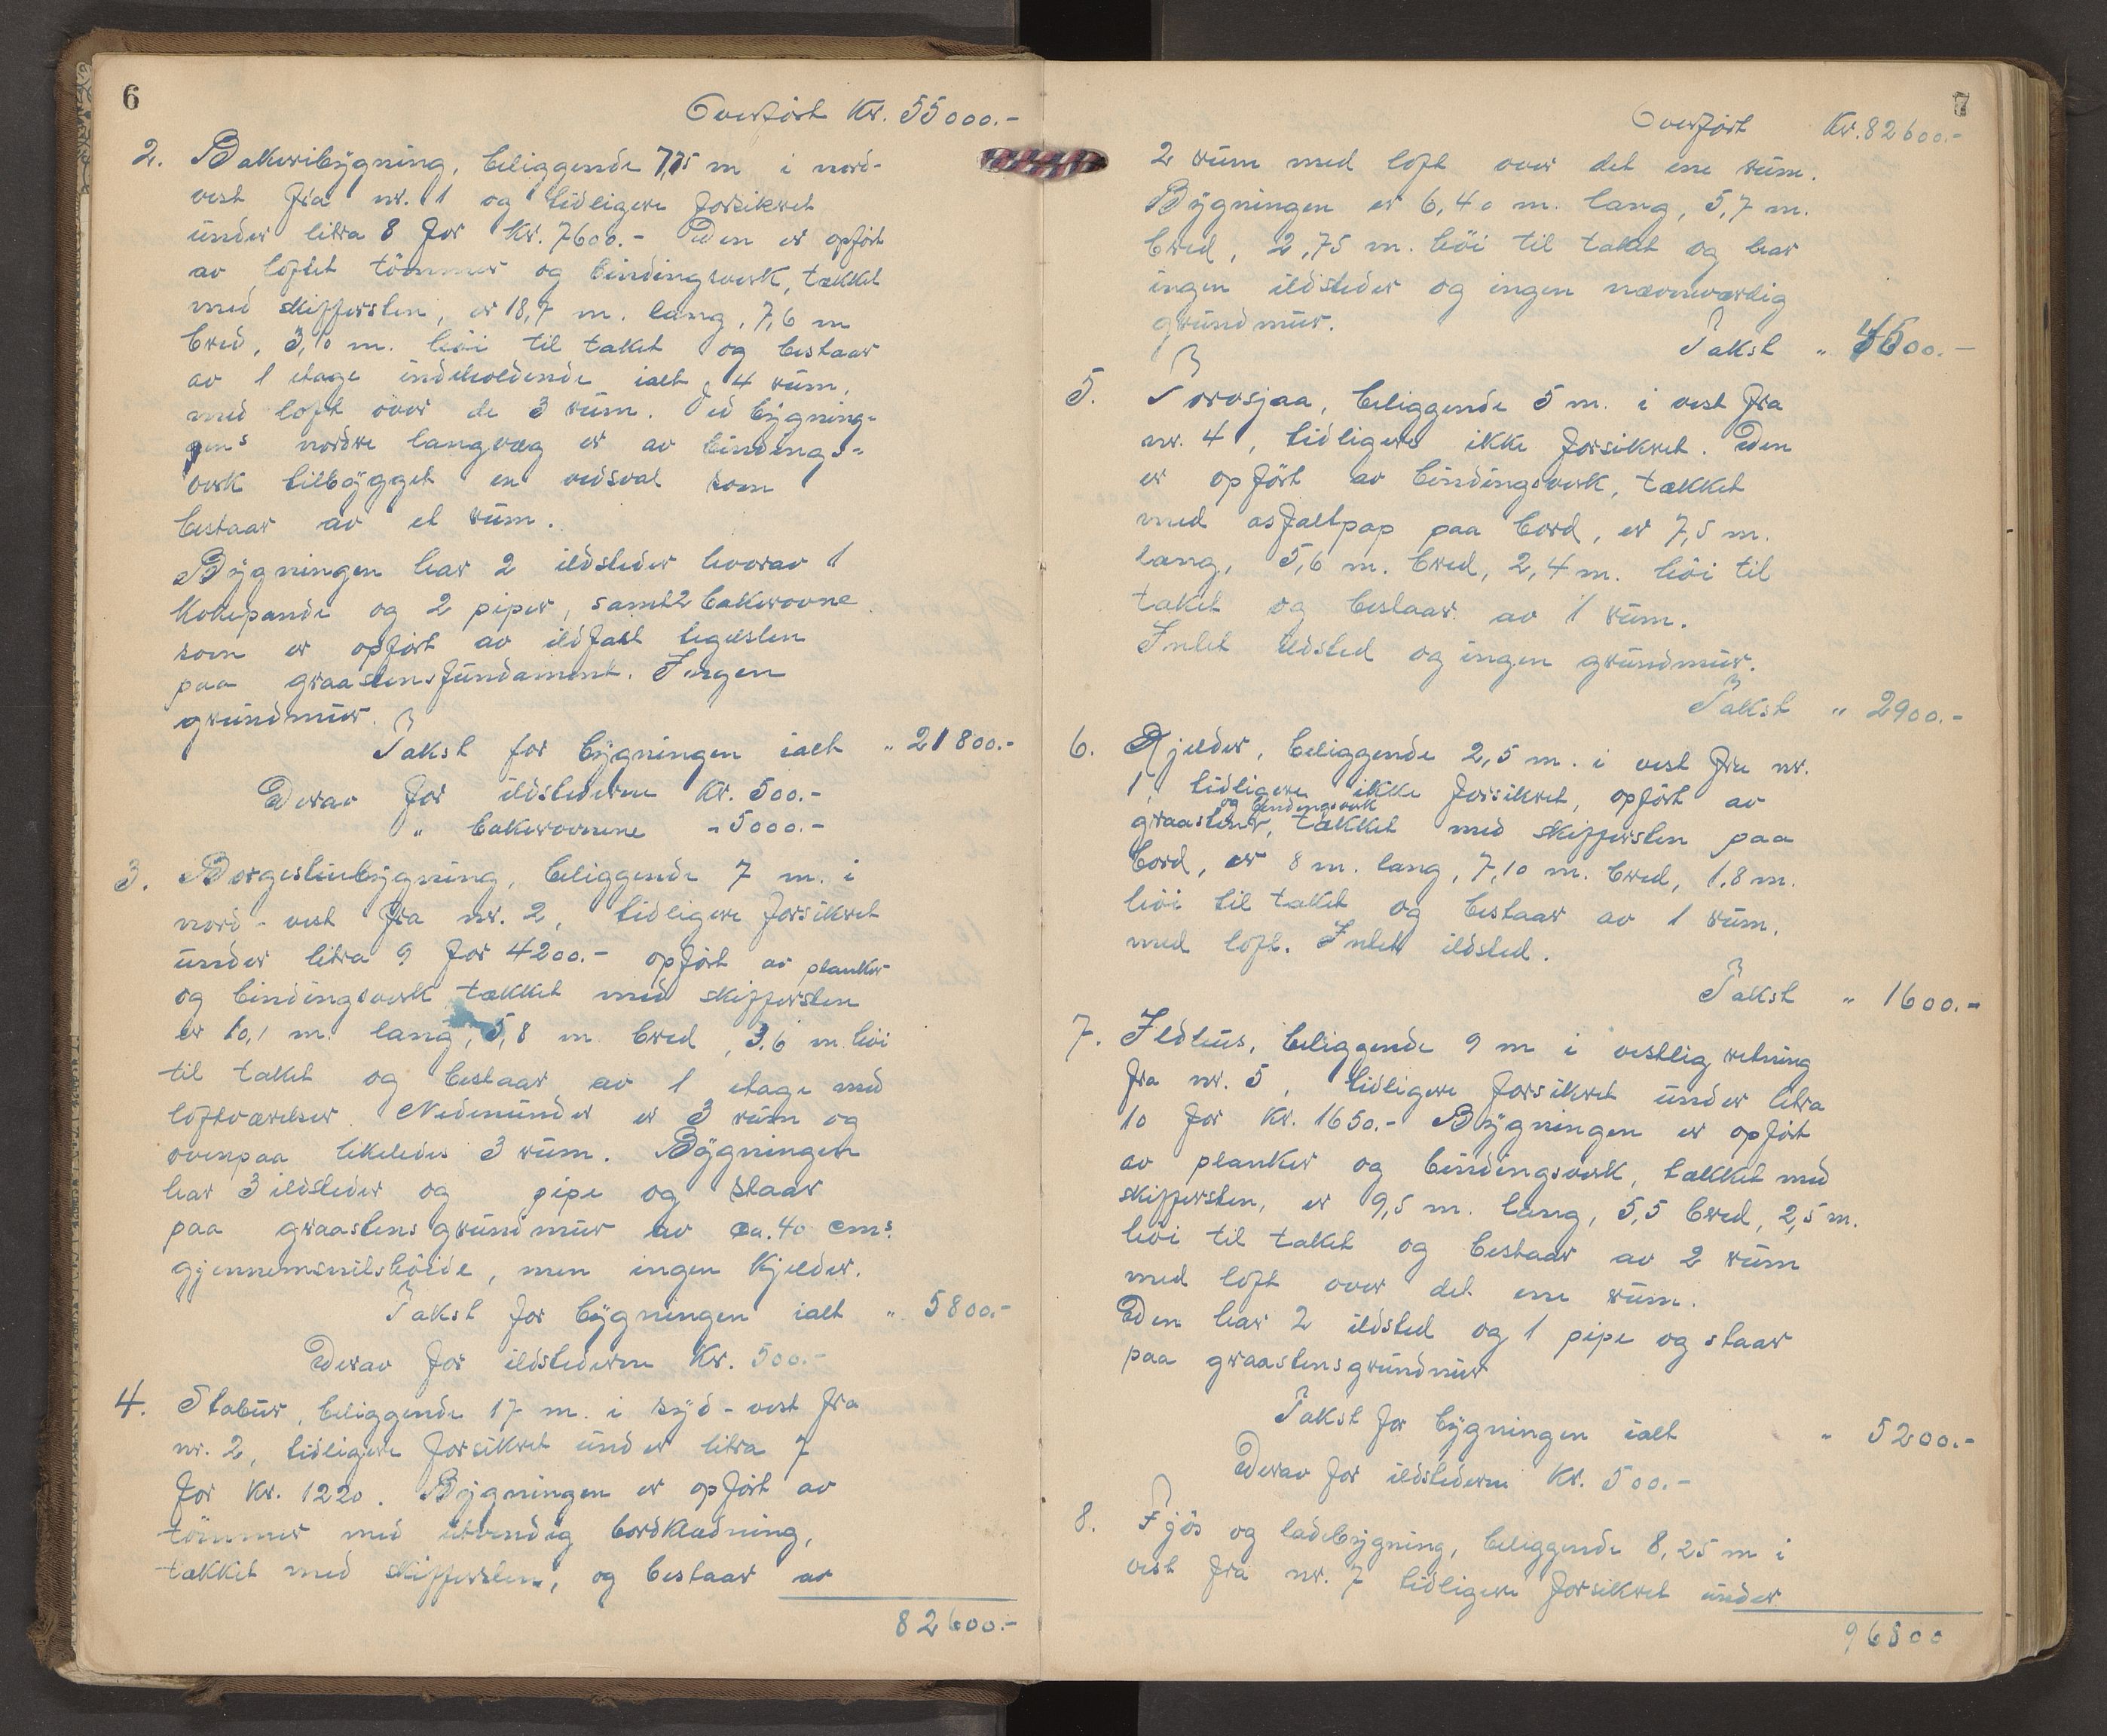 6
Overført Kr. 55000.-
2. Bakeribygning, beliggende 7,75 m i nord-
vest fra nr. 1 og tidligere forsikret
under litra 8 for Kr. 7600.- Den er opført
av loftet tömmer og bindingsverk, tækket
med skiffersten, er 18,7 m. lang, 7,6 m
bred, 3,10 m. höi til taket og bestaar
av 1 etage indeholdende ialt 4 rum,
med loft over de 3 rum. Ved bygning-
ens nordre langvæg er av bindings-
verk tilbygget en vedsval som
bestaar av et rum.
Bygningen har 2 ildsteder hvorav 1
Kokepande og 2 piper, samt 2 bakerovne
som er opført av ildfast teglsten
paa graastensfundament. Ingen
grundmur.
Takst for bygningen ialt " 21800.-
Derav for ildstederne Kr. 500.-
" bakerovnene - 5000.-
3. Borgestuebygning, beliggende 7 m. i
nord-vest fra nr. 2, tidligere forsikret
under litra 9 for 4200.- opført av planker
og bindingsverk tækket med skiffersten
er 10,1 m. lang, 5,8 m bred, 3,6 m höi
til taket og bestaar av 1 etage med
loftværelser. Nedenunder er 3 rum og
ovenpaa likeledes 3 rum. Bygningen
har 3 ildsteder og pipe og staar
paa graastens grundmur av ca. 40 cms.
gjennemsnitshöide, men ingen Kjelder.
Takst for bygningen ialt " 5800.-
Derav for ildstederne Kr. 500.-
4. Stabur, beliggende 17 m. i syd-vest fra
nr. 2, tidligere forsikret under litra 7
for Kr. 1220. Bygningen er opført av
tömmer med utvendig bordklædning,
tækket med skiffersten, og bestaar av
82600.-
7
Overført Kr. 82600.-
2 rum med loft over det ene rum.
Bygningen er 6,40 m. lang, 5,7 m.
bred, 2,75 m. höi til taket og har
ingen ildsteder og ingen nævneværdig
grundmur.
Takst " 4500.-
5. Torvsjaa, beliggende 5 m. i vest fra
nr. 4, tidligere ikke forsikret. Den
er opført av bindingsverk, tækket
med asfaltpap paa bord, er 7,5 m.
lang, 5,6 m. bred, 2,4 m. höi til
taket og bestaar av 1 rum.
Intet ildsted og ingen grundmur.
Takst " 2900.-
6. Kjelder, beliggende 2,5 m. i vest fra nr.
1, tidligere ikke forsikret, opført av
og bindingsverk
graasten, tækket med skiffersten paa
bord, er 8 m. lang, 7,10 m. bred, 1.8 m.
höi til taket og bestaar av 1 rum,
med loft. Intet ildsted.
Takst " 1600.-
7. Ildhus, beliggende 9 m i vestlig retning
fra nr. 5, tidligere forsikret under litra
10 for Kr. 1650.- Bygningen er opført
av planker og bindingsverk, tækket med
skiffersten, er 9,5 m. lang, 5,5 bred, 2,5 m.
höi til taket og bestaar av 2 rum
med loft over det ene rum.
Den har 2 ildsted og 1 pipe og staar
paa graastensgrundmur
Takst for bygningen ialt " 5200.-
Derav for ildstederne Kr. 500.-
8. Fjös og ladebygning, beliggende 8,25 m i
vest fra nr. 7 tidligere forsikret under
96800